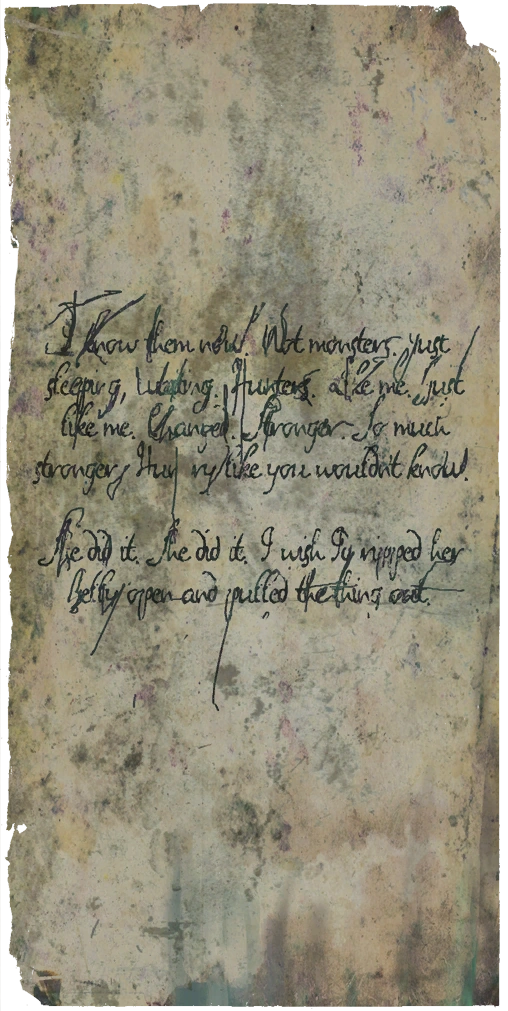 I know them now. Not monsters. Just
sleeping, waiting. Hunters. Like me. Just
like me. Changed. Stronger. So much
stronger. Hun ry like you wouldn't know.
She did it. She did it. I wish I'd ripped her
belly open and pulled the thing out.